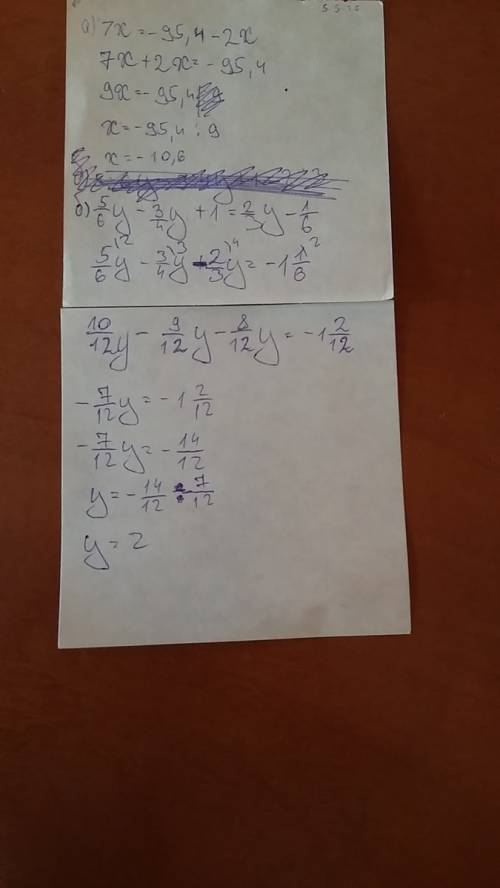 а) 7x = -95,4 - 2x
7x + 2x = -95,4
9x = -95,4
x = -95,4 : 9
x = -10,6
б) 5/6 y - 3/4 y + 1 = 2/3 y - 1/6
5/6 y ^2 - 3/4 y ^3 - 2/3 y ^4 = -1 1/6 ^2
10/12 y - 9/12 y - 8/12 y = -1 2/12
-7/12 y = -1 2/12
-7/12 y = -14/12
y = -14/12 : -7/12
y = 2